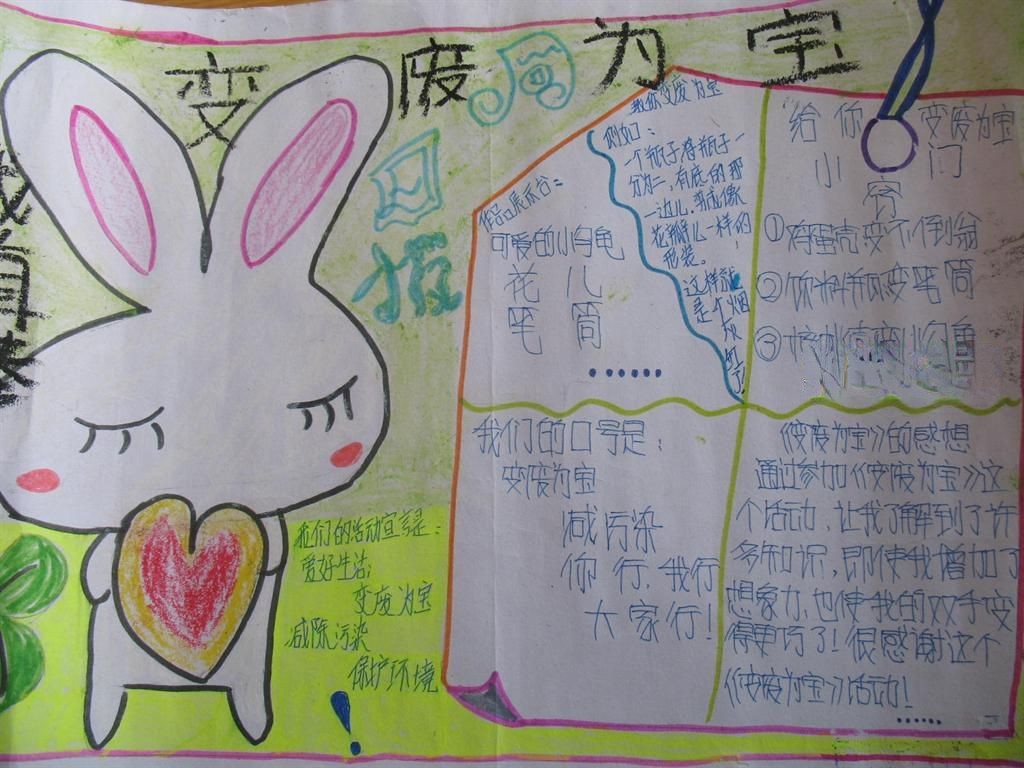 变废为宝
周
回
报
教你变废为宝
例如:
一个瓶子将瓶子一
分为二,有底的那
一边儿,变成像
花瓣儿一样的
形装。
这样就
是个烟
灰缸了
作品展示台:
可爱的小乌龟
花儿
笔筒
......
给你变废为宝
小
窍
门
①鸡蛋壳变不倒翁
②饮料瓶变笔筒
我们的口号是:
变废为宝
减污染
你行,我行
大家行!
《变废为宝》的感想
通过参加《变废为宝》这
个活动,让我了解到了许
多知识,即使我增加了
想象力,也使我的双手变
得更巧了!很感谢这个
《变废为宝》活动!
......
我们的活动宣言是:
爱好生活,
变废为宝
减除污染
保护环境
!